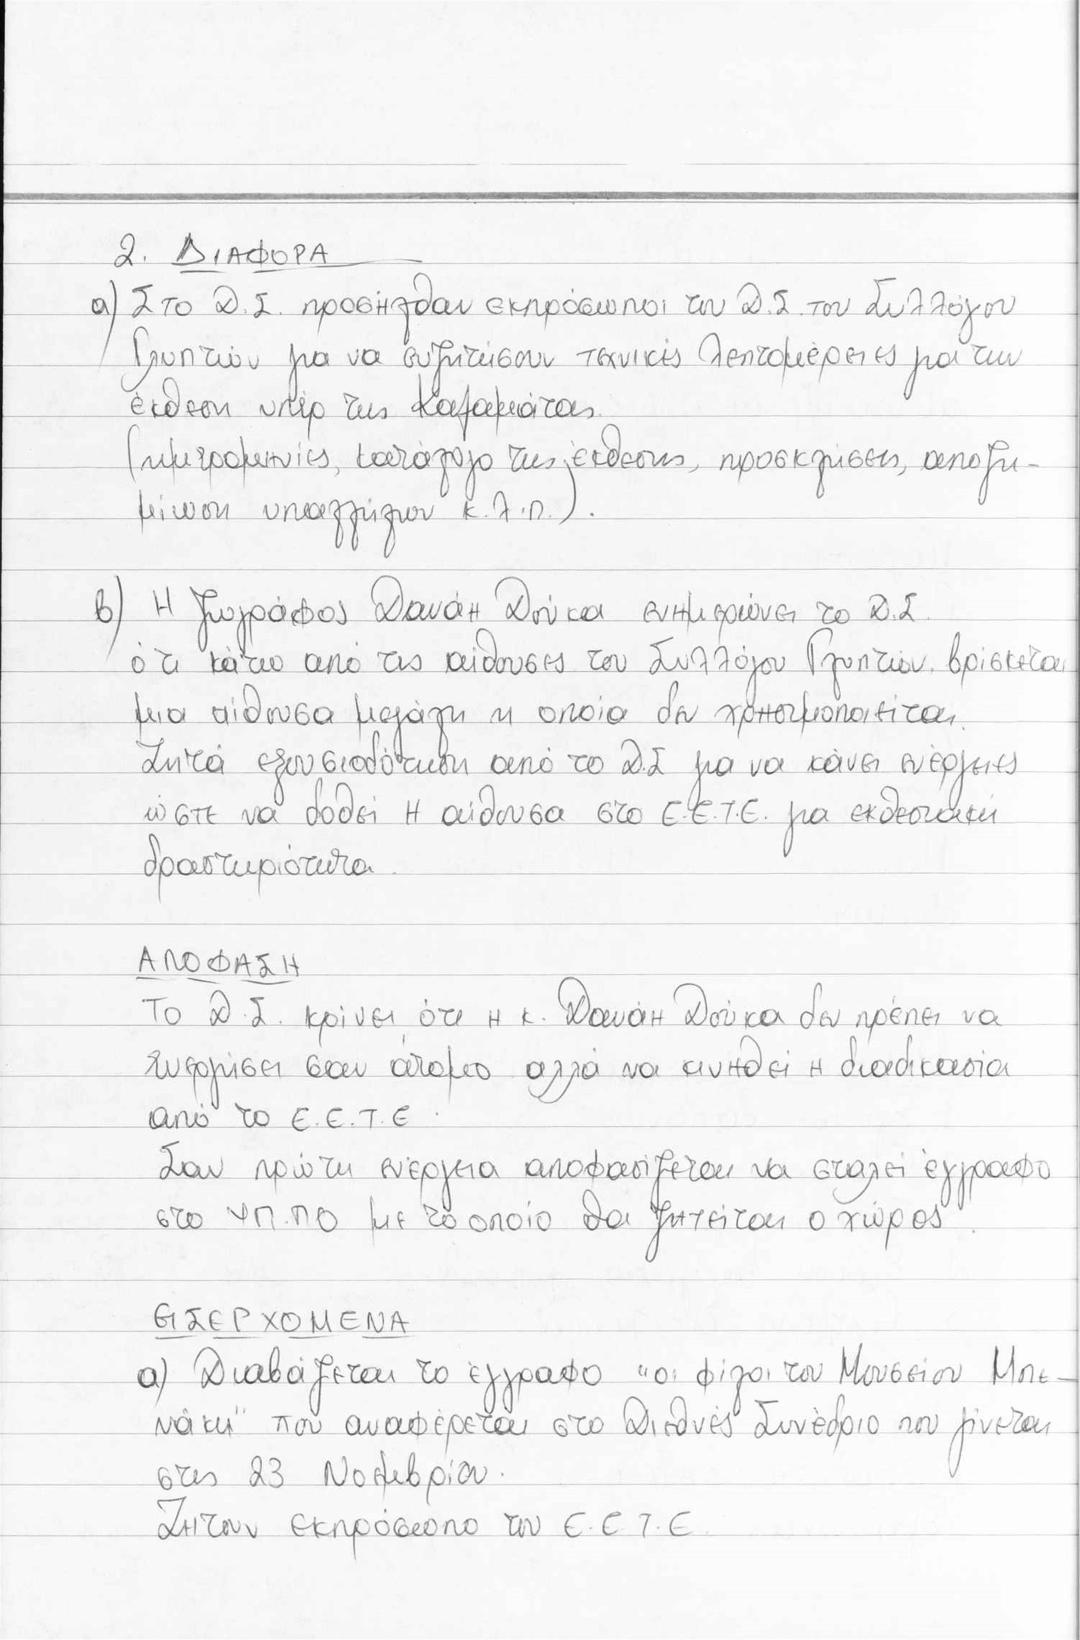 2. ΔΙΑΦΟΡΑ
α) Στο Δ.Σ. προσήλθαν εκπρόσωποι του Δ.Σ. του Συλλόγου
Γλυπτών για να συζητήσουν τεχνικές λεπτομέρειες για την
έκθεση υπέρ της Καλαμάτας
(ημερομηνίες, κατάλογο της έκθεσης, προσκλήσεις, αποζη-
μίωση υπαλλήλων κ.λ.π.).
β) Η ζωγράφος Δανάη Δούκα ενημερώνει το Δ.Σ.
ότι κάτω από τις αίθουσες του Συλλόγου Γλυπτών, βρίσκεται
μια αίθουσα μεγάλη η οποία δεν χρησιμοποιείται.
Ζητά εξουσιοδότηση από το Δ.Σ για να κάνει ενέργειες
ώστε να δοθεί η αίθουσα στο Ε.Ε.Τ.Ε. για εκθεσιακή
δραστηριότητα.
ΑΠΟΦΑΣΗ
Το Δ.Σ. κρίνει ότι η κ. Δανάη Δούκα δεν πρέπει να
ενεργήσει σαν άτομο αλλά να κινηθεί η διαδικασία
από το Ε.Ε.Τ.Ε.
Σαν πρώτη ενέργεια αποφασίζεται να σταλεί έγγραφο
στο ΥΠ.ΠΟ με το οποίο θα ζητείται ο χώρος.
ΕΙΣΕΡΧΟΜΕΝΑ
α) Διαβάζεται το έγγραφο "οι φίλοι του Μουσείου Μπε-
νάκη" που αναφέρεται στο Διεθνές Συνέδριο που γίνεται
στις 23 Νοεμβρίου.
Ζητούν εκπρόσωπο του Ε.Ε.Τ.Ε.